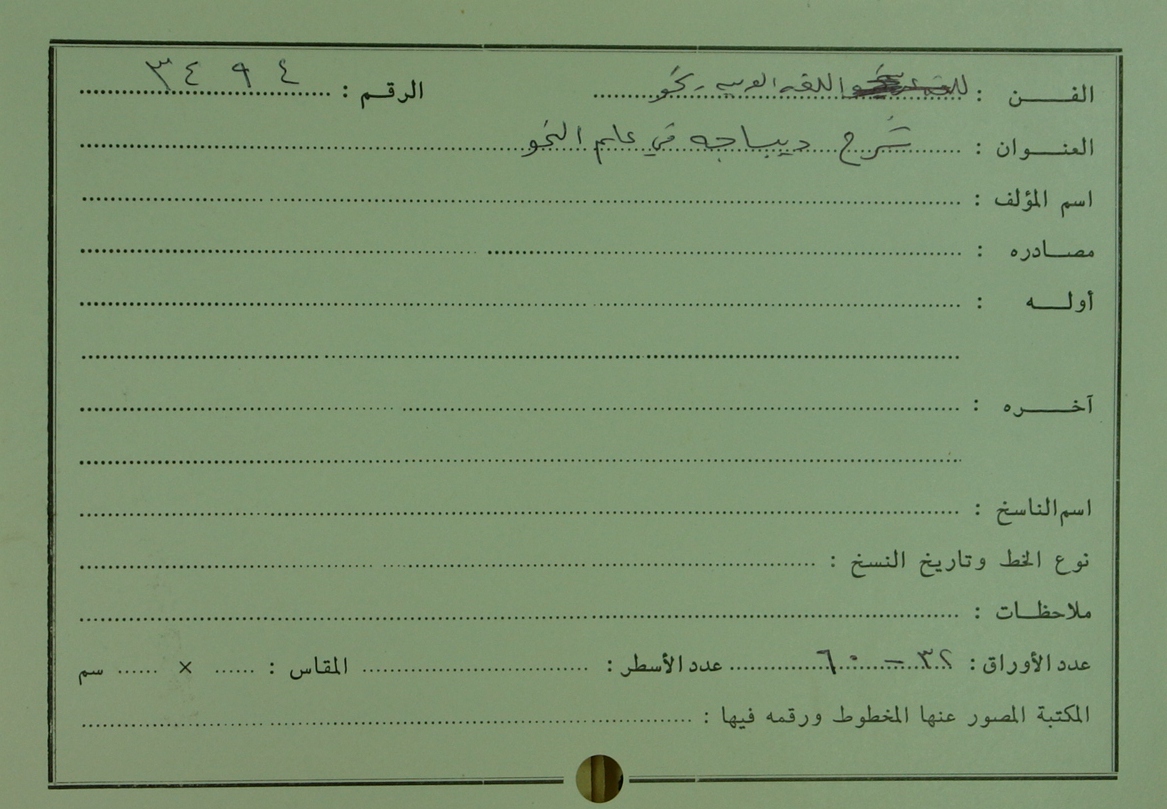 الفن : اللغة العربية - نحو الرقم : ٣٤٩٤
العنوان : شرح ديباجه في علم النحو
اسم المؤلف :
مصادره :
أوله :
آخره :
اسم الناسخ :
نوع الخط وتاريخ النسخ :
ملاحظات :
عدد الأوراق : ٣٢ - ٦٠ عدد الأسطر : المقاس : × سم
المكتبة المصور عنها المخطوط ورقمه فيها :